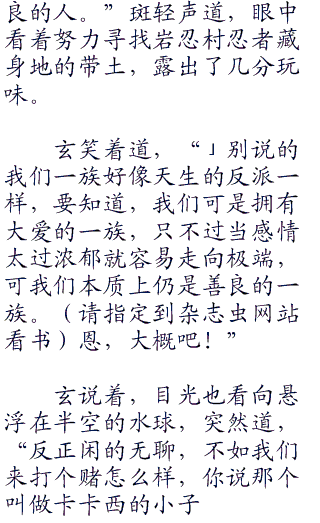 良的人。”斑轻声道，眼中
看着努力寻找岩忍村忍者藏
身地的带土，露出了几分玩
味。
玄笑着道，“｣别说的
我们一族好像天生的反派一
样，要知道，我们可是拥有
大爱的一族，只不过当感情
太过浓郁就容易走向极端，
可我们本质上仍是善良的一
族。（请指定到杂志虫网站
看书）恩，大概吧！”
玄说着，目光也看向悬
浮在半空的水球，突然道，
“反正闲的无聊，不如我们
来打个赌怎么样，你说那个
叫做卡卡西的小子